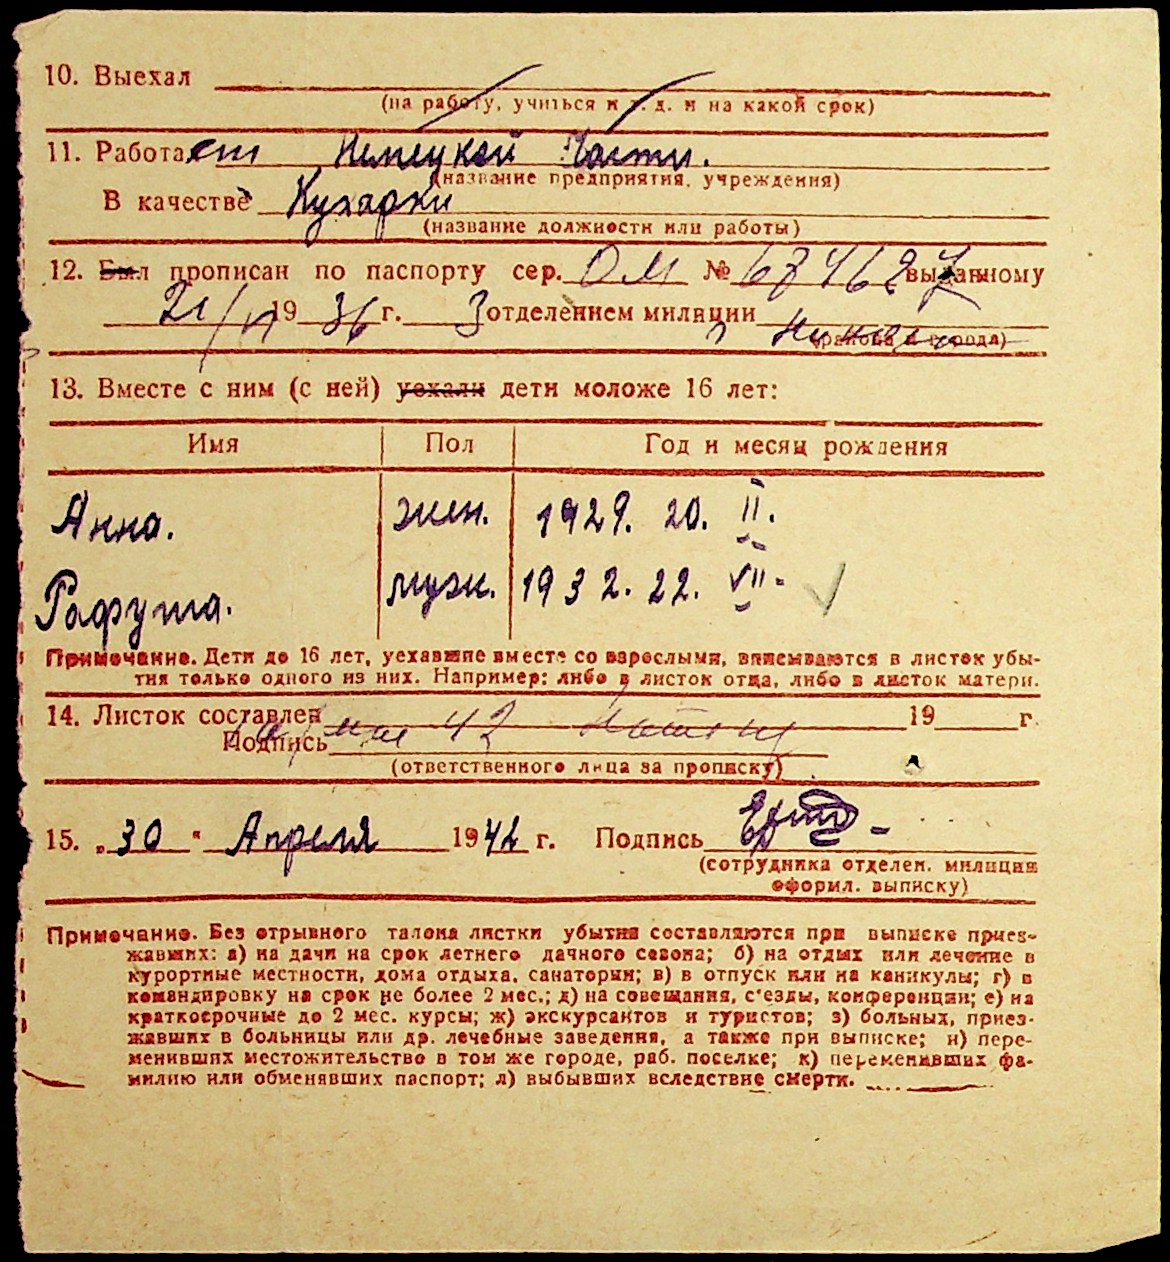 10. Выехал
(на работу, учиться и т. д. и на какой срок)
11. Работает Немецкой Части.
(название предприятия, учреждения)
В качестве Кухарки
(название должности или работы)
12. Был прописан по паспорту сер. ОМ № выданному
21/VI 1936 г. 3 отделением милиции
(района и города)
13. Вместе с ним (с ней) уехали дети моложе 16 лет:
Имя Пол Год и месяц рождения
Анна. жен. 1929. 20. II.
Рафуша. муж. 1932. 22. VII.
Примечание. Дети до 16 лет, уехавшие вместе со взрослыми, вписываются в листок убы-
тия только одного из них. Например: либо в листок отца, либо в листок матери.
14. Листок составлен 19 г.
мая 42
Подпись
(ответственного лица за прописку)
15. „30" Апреля 1942 г. Подпись
(сотрудника отделен. милиции
оформл. выписку)
Примечание. Без отрывного талона листки убытия составляются при выписке приез-
жавших: а) на дачи на срок летнего дачного сезона; б) на отдых или лечение в
курортные местности, дома отдыха, санатории; в) в отпуск или на каникулы; г) в
командировку на срок не более 2 мес.; д) на совещания, с'езды, конференции; е) на
краткосрочные до 2 мес. курсы; ж) экскурсантов и туристов; з) больных, приез-
жавших в больницы или др. лечебные заведения, а также при выписке; и) пере-
менивших местожительство в том же городе, раб. поселке; к) переменивших фа-
милию или обменявших паспорт; л) выбывших вследствие смерти.